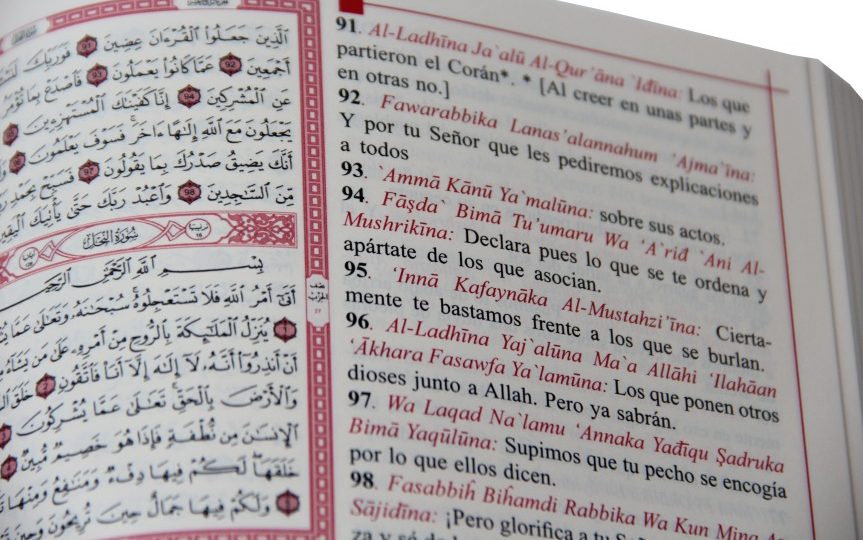 الَّذِينَ جَعَلُوا الْقُرْءَانَ عِضِينَ 91 فَوَرَبِّكَ
أَجْمَعِينَ 92 عَمَّا كَانُوا يَعْمَلُونَ 93 فَاصْدَعْ بِمَا تُؤْمَرُ
عَنِ الْمُشْرِكِينَ 94 إِنَّا كَفَيْنَٰكَ الْمُسْتَهْزِءِينَ
يَجْعَلُونَ مَعَ اللَّهِ إِلَٰهًا ءَاخَرَ فَسَوْفَ يَعْلَمُونَ
أَنَّكَ يَضِيقُ صَدْرُكَ بِمَا يَقُولُونَ 97 فَسَبِّحْ بِحَمْدِ
مِّنَ السَّٰجِدِينَ 98 وَاعْبُدْ رَبَّكَ حَتَّىٰ يَأْتِيَكَ الْيَقِينُ
سُورَةُ النَّحْلِ
بِسْمِ اللَّهِ الرَّحْمَٰنِ الرَّحِيمِ
أَتَىٰٓ أَمْرُ اللَّهِ فَلَا تَسْتَعْجِلُوهُ سُبْحَٰنَهُ وَتَعَٰلَىٰ عَمَّا
1 يُنَزِّلُ الْمَلَٰٓئِكَةَ بِالرُّوحِ مِنْ أَمْرِهِ عَلَىٰ مَن يَشَآءُ
أَنْ أَنذِرُوٓا أَنَّهُ لَآ إِلَٰهَ إِلَّآ أَنَا فَاتَّقُونِ 2 خَلَقَ
وَالْأَرْضَ بِالْحَقِّ تَعَٰلَىٰ عَمَّا يُشْرِكُونَ 3
الْإِنسَٰنَ مِن نُّطْفَةٍ فَإِذَا هُوَ خَصِيمٌ مُّبِينٌ 4
خَلَقَهَا لَكُمْ فِيهَا دِفْءٌ وَمَنَٰفِعُ وَمِنْهَا
5 وَلَكُمْ فِيهَا جَمَالٌ حِينَ تُرِيحُونَ وَحِينَ
91. Al-Ladhīna Ja`alū Al-Qur'āna `Iđīna: Los que
partieron el Corán*. * [Al creer en unas partes y
en otras no.]
92. Fawarabbika Lanas'alannahum 'Ajma`īna:
Y por tu Señor que les pediremos explicaciones
a todos
93. `Ammā Kānū Ya`malūna: sobre sus actos.
94. Fāşda` Bimā Tu'umaru Wa 'A`riđ `Ani Al-
Mushrikīna: Declara pues lo que se te ordena y
apártate de los que asocian.
95. 'Innā Kafaynāka Al-Mustahzi'īna: Cierta-
mente te bastamos frente a los que se burlan.
96. Al-Ladhīna Yaj`alūna Ma`a Allāhi 'Ilahāan
'Ākhara Fasawfa Ya`lamūna: Los que ponen otros
dioses junto a Allah. Pero ya sabrán.
97. Wa Laqad Na`lamu 'Annaka Yađīqu Şadruka
Bimā Yaqūlūna: Supimos que tu pecho se encogía
por lo que ellos dicen.
98. Fasabbiĥ Biĥamdi Rabbika Wa Kun Mina As-
Sājidīna: ¡Pero glorifica a tu
za y sé de